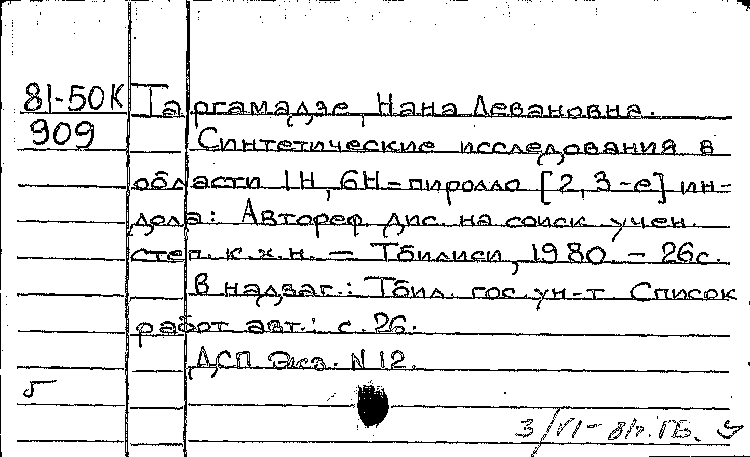 81-50К Таргамадзе, Нана Левановна.
909 Синтетические исследования в
области 1Н, 6Н-пирроло [2,3-е] ин-
дола: Автореф. дис. на соиск. учен.
степ. к.х.н. — Тбилиси, 1980. - 26с.
В надзаг.: Тбил. гос. ун-т. Список
работ авт.: с. 26.
ДСП Экз. N 12.
3/VI-81г. ГБ.